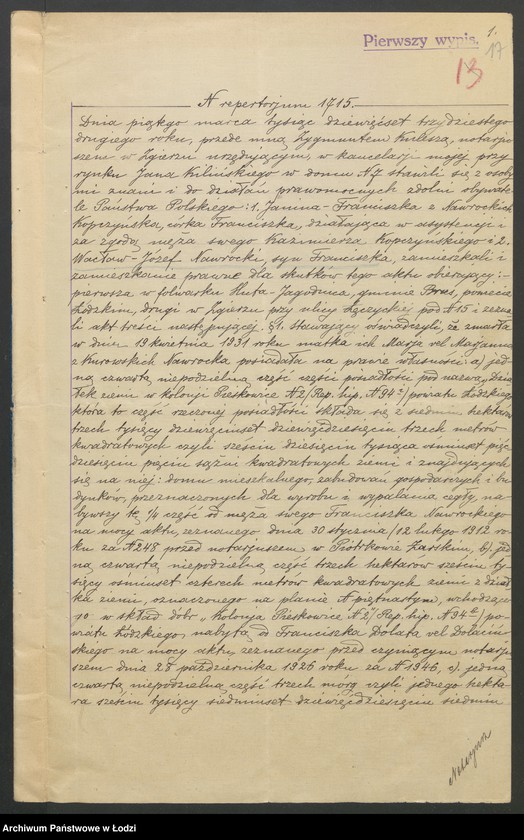 1.
Pierwszy wypis.
17
13
N repertorjum 1715.
Dnia piątego marca tysiąc dziewięćset trzydziestego
drugiego roku, przede mną Zygmuntem Kulesza, notarju-
szem w Zgierzu urzędującym, w kancelarji mojej przy
rynku Jana Kilińskiego w domu N 7 stawili się z osoby
mi znani i do działań prawomocnych zdolni obywate-
le Państwa Polskiego: 1. Janina-Franciszka z Nawrockich
Kopczyńska, córka Franciszka, działająca w asystencji i
za zgodą męża swego Kazimierza Kopczyńskiego i 2.
Wacław-Józef Nawrocki, syn Franciszka, zamieszkali i
zamieszkanie prawne dla skutków tego aktu obierający:-
pierwsza w folwarku Huta-Jagodnica, gminie Brus, powiecie
Łódzkim, drugi w Zgierzu przy ulicy Łęczyckiej pod N 15 i zezna-
li akt treści następującej. § 1. Stawający oświadczyli, że zmarła
w dniu 19 kwietnia 1931 roku matka ich Marja vel Marjanna
z Kurowskich Nawrocka posiadała na prawie własności: a) jed-
ną czwartą niepodzielną część części posiadłości pod nazwą „Dzia-
łek ziemi w kolonji Pieskowice N 2" /Rep. hip. N 94 / powiatu Łódzkiego
która to część rzeczonej posiadłości składa się z siedmiu hektarów
trzech tysięcy dziewięciuset dziewięćdziesięciu trzech metrów
kwadratowych czyli sześciu dziesięcin tysiąca ośmiuset pięć-
dziesięciu pięciu sążni kwadratowych ziemi i znajdujących
się na niej: domu mieszkalnego, zabudowań gospodarczych i bu-
dynków, przeznaczonych dla wyrobu i wypalania cegły, na-
bywszy tę 1/4 część od męża swego Franciszka Nawrockiego
na mocy aktu, zeznanego dnia 30 stycznia/12 lutego 1912 ro-
ku za N 248 przed notarjuszem w Piotrkowie Żarskim, b) jed-
ną czwartą niepodzielną część trzech hektarów sześciu ty-
sięcy ośmiuset czterech metrów kwadratowych ziemi z dział-
ka ziemi, oznaczonego na planie N piętnastym, wchodzące-
go w skład dóbr „Kolonja Pieskowice N 2" /Rep. hip. N 94 / po-
wiatu Łódzkiego, nabytą od Franciszka Dolata vel Dolaciń-
skiego na mocy aktu, zeznanego przed czyniącym notarju-
szem dnia 28 października 1926 roku za N 1946, c) jedną
czwartą niepodzielną część trzech mórg czyli jednego hekta-
ra sześciu tysięcy siedmiuset dziewięćdziesięciu siedmiu
Notarjusz
Archiwum Państwowe w Łodzi